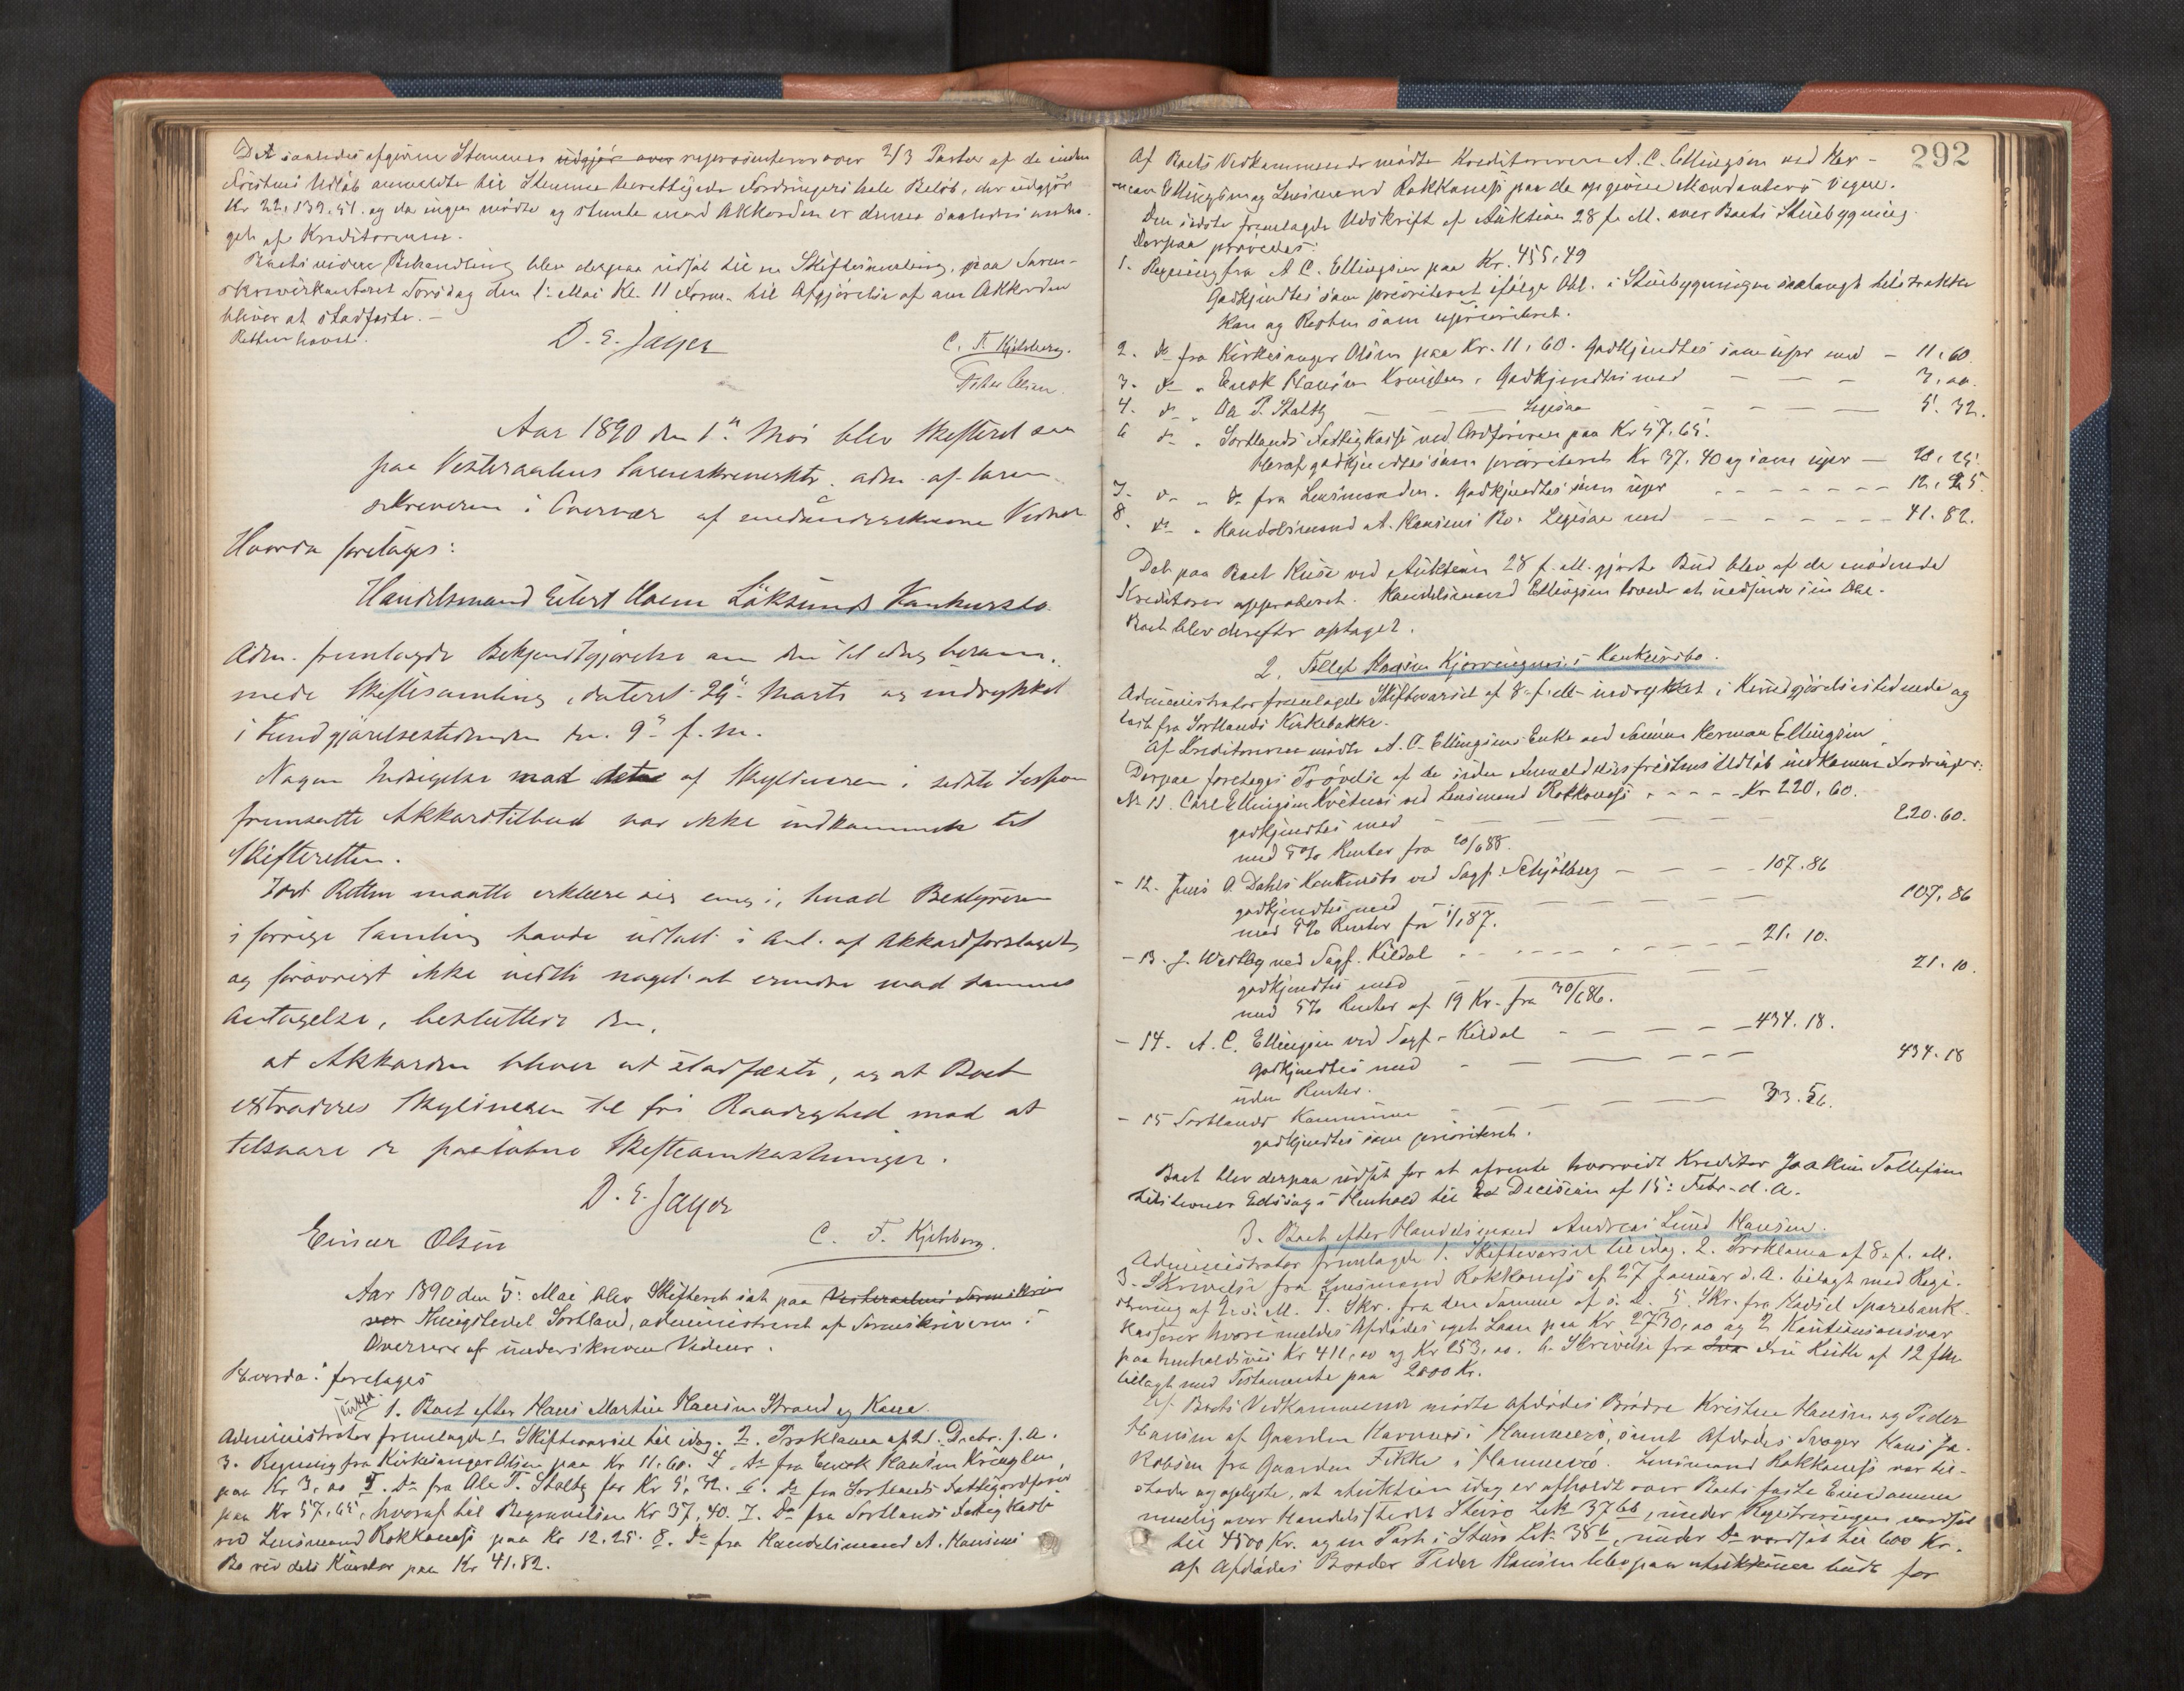 Det saaledes afgivne Stemmer udgjør over repræsenterer over 2/3 Parter af de inden
Fristens Udløb anmeldte til Stemme berettigede Fordringers hele Beløb, der udgjør
Kr 22,139.51. og da ingen mødte og stemte imod Akkorden er denne saaledes vedta-
get af Kreditorerne.
Boets videre Behandling blev derpaa udsat til en Skiftesamling, paa Soren-
skriverkontoret Torsdag den 1ste Mai Kl. 11 Form. til Afgjørelse af om Akkorden
bliver at stadfæste. –
Retten hævet.
D. E. Jayer
C. F. Kjelsberg.
Peder Olsen.
Aar 1890 den 1ste Mai blev Skifteret sat
paa Vesteraalens Sorenskriverktr. adm. af Soren-
skriveren i Overvær af medunderskrevne Vidner
Hvorda foretages:
Handelsmand Eilert Holm Löksunds Konkursbo.
Adm. fremlagde Bekjendtgjørelse om den til idag beram-
mede Skiftesamling, dateret 29de Marts og indrykket
i Kundgjørelsestidenden den 9de f. M.
Nogen Indsigelse mod det af Skyldneren i sidste Session
fremsatte Akkordtilbud var ikke indkommet til
Skifteretten.
Idet Retten maatte erklære sig enig i, hvad Bestyreren
i forrige Samling havde udtalt i Anl. af Akkordforslaget,
og forøvrigt ikke vidste noget at erindre mod sammes
Antagelse, besluttede den,
at Akkorden bliver at stadfæste, og at Boet
extraderes Skyldneren til fri Raadighed mod at
tilsvare de paaløbne Skifteomkostninger.
D. E. Jayer
Einar Olsen
C. F. Kjelsberg.
Aar 1890 den 5. Mai blev Skifteret sat paa Vesteraalens Sorenskriv
ver Thingstedet Sortland, administreret af Sorenskriveren i
Overvær af underskrevne Vidner.
Hvorda: foretages
1. Boet efter Hans Martin Hansen Strand og Kone.
Administrator fremlagde 1. Skiftevarsel til idag. 2. Proklama af 21. Decbr. f. A.
3. Regning fra Kirkesanger Olsen paa Kr 11,60. 4. Do fra Enok Hansen Kringlen,
paa Kr 3,00 5. Do fra Ole P. Stoltz for Kr 5,32. 6. Do fra Sortlands Fattigordfører
paa Kr 57,65, hvoraf til Begravelsen Kr 37,40. 7. Do fra Sortlands Fattigkasse
ved Lensmand Rokkones paa Kr 12.25. 8. Do fra Handelsmand A. Hansens
Bo ved dets Kurator paa Kr 41.82.
292
Af Boets Vedkommende mødte Kreditorerne A. C. Ellingsen ved Her-
man Ellingsen og Lensmand Rokkones paa de opgivne Mandanters Vegne.
Den sidste fremlagde Udskrift af Auktion 28 f. M. over Boets Stuebygning.
Derpaa prøvedes:
1. Regning fra A. C. Ellingsen paa Kr. 455,49
Godkjendtes som prioriteret ifølge Obl. i Stuebygningen saalangt tilstrække
kan og Resten som uprioriteret.
2. Do fra Kirkesanger Olsen paa Kr. 11,60. Godkjendtes som upr med – 11,60.
3. Do " Enok Hansen Kringlen, Godkjendtes med – – – 3,00.
4. Do " Ole P. Stoltz – – – Ligesaa – – – – 5.32.
6 Do " Sortlands Fattigkasse ved Ordføreren paa Kr 57,65.
Heraf godkjendtes som prioriteret Kr 37.40 og som upr – 20,25.
7. Do " Do fra Lensmanden. Godkjendtes som upr – – – 12,25.
8. Do " Handelsmand A. Hansens Bo. Ligesaa med – – – 41.82.
Det paa Boets Huse ved Auktion 28 f. M. gjorte Bud blev af de mødende
Kreditorer approberet. Handelsmand Ellingsen lovede at indsende sin Obl.
Boet blev derefter optaget.
2. Tollef Hansen Kjerringnes's Konkursbo.
Administrator fremlagde Skiftevarsel af 8. f. M. indrykket i Kundgjørelsestidende og
læst fra Sortlands Kirkebakke.
Af Kreditorerne mødte A. C. Ellingsens Enke ved Sønnen Herman Ellingsen
Derpaa foretoges Prøvelse af de inden Anmeldelsesfristens Udløb indkomne Fordringer:
No 11. Carl Ellingsen Kvitnes ved Lensmand Rokkones - - - - Kr 220,60.
godkjendtes med – – – 220.60.
med 5% Renter fra 20/6 88.
- 12. Jens O. Dahls Konkursbo ved Sagf. Schjølberg – – – 107.86
godkjendtes med – – – 107,86
med 5% Renter fra 1/1 87.
- 13. J. Westbly ved Sagf. Kildal - - - - 21.10.
godkjendtes med – – 21.10.
med 5% Renter af 19 Kr. fra 30/6 86.
- 14. A. C. Ellingsen ved Sagf. Kildal – – – 434.18.
Godkjendtes med – – – 434.18
uden Renter.
- 15 Sortlands Kommune – – – 33.56.
godkjendtes som prioriteret.
Boet blev derpaa udsat for at afvente hvorvidt Kreditor Joakim Tollefsen
tilstevner Edssag i Henhold til Decision af 15. Febr. d. A.
3. Boet efter Handelsmand Andreas Lund Hansen.
Administrator fremlagde 1. Skiftevarsel til idag. 2. Proklama af 8. f. M.
3. Skrivelse fra Lensmand Rokkones af 27 Januar d. A. bilagt med Regi-
strering af 4. Skr. fra den Samme af s. D. 5. Skr. fra Hadsel Sparebank-
kasserer hvori meldes Afdødes eget Laan paa Kr 2730,00 og 2 Kautionsansvar
paa henholdsvis Kr 411,00 og Kr 253,00. 6. Skrivelse fra af 12 f. M.
bilagt med Testamente paa 2000 Kr.
Af Boets Vedkommende mødte Afdødes Brødre Kristen Hansen og Peder
Hansen af Gaarden i Hammerø, samt Afdødes Svoger Hans Ja-
kobsen fra Gaarden i Hammerø. Lensmand Rokkones var til-
stede og oplyste, at Auktion idag er afholdt over Boets faste Eiendomme
nemlig over Handelsstedet Steiro Lit 37bb, under Registreringen værdsat
til 4500 Kr. og en Part i Steiro Lit. 38b, under Do værdsat til 600 Kr.
Af Afdødes Broder Peder Hansen blev paa Auktionen budt for